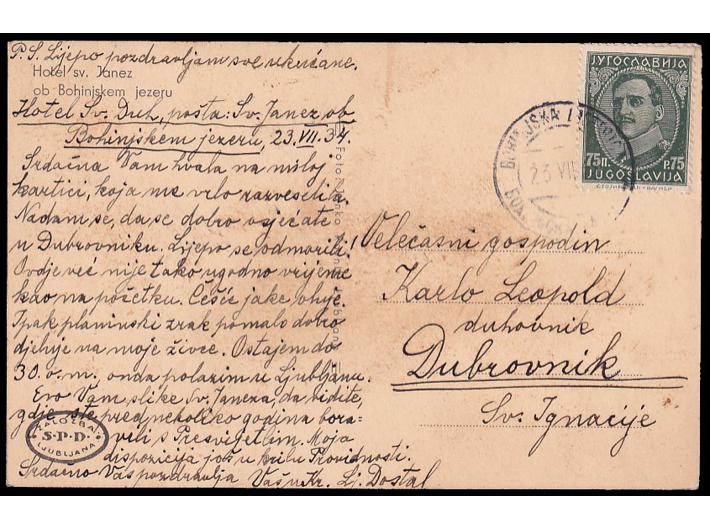 P.S. Lijepo pozdravljam sve ukućane.
Hotel sv. Janez
ob Bohinjskem jezeru
Hotel Sv. Duh, pošta: Sv. Janez ob
Bohinjskem jezeru, 23.VII.34.
Srdačna Vam hvala na miloj
kartici, koja me vrlo razveselila.
Nadam se, da se dobro osjećate
u Dubrovniku. Lijepo se odmorili!
Ovdje već nije tako ugodno vrijeme
kao na početku. Češće jake
Ipak planinski zrak pomalo dobro
djeluje na moje živce. Ostajem do
30. o. m. onda polazim u Ljubljanu.
Evo Vam slike Sv. Janeza, da vidite,
gdje ste pred nekoliko godina bora-
vili s Presvijetlim. Moja
dispozicija još u krilu Providnosti.
Srdačno Vas pozdravlja Vaš u Kr. Lj. Dostal
ZALOŽBA
S·P·D·
LJUBLJANA
Foto
ЈУГОСЛАВИЈА
75П. P.75
JUGOSLAVIJA
23 VII
Velečasni gospodin
Karlo Leopold
duhovnik
Dubrovnik
Sv. Ignacije